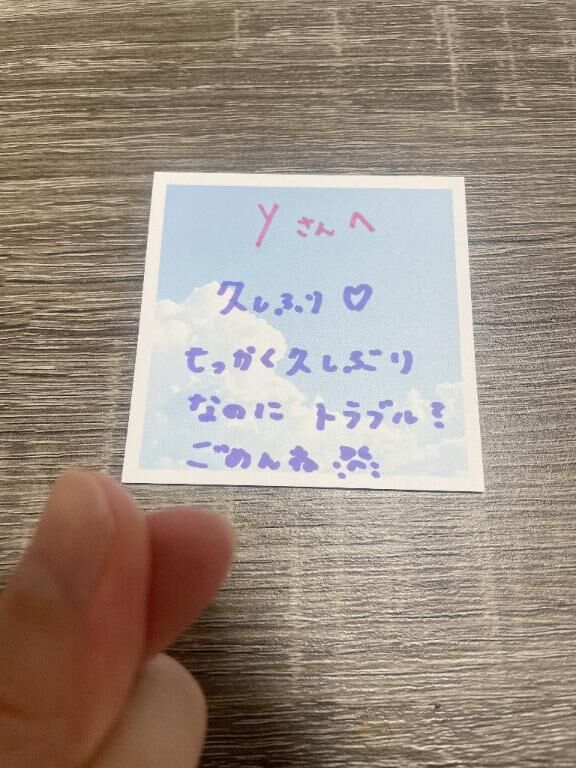 Yさんへ
久しぶり♡
せっかく久しぶり
なのにトラブル!
ごめんね💦